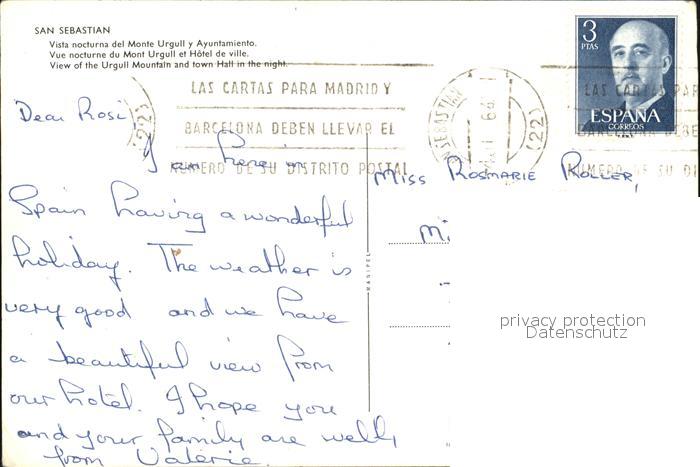 SAN SEBASTIAN
Vista nocturna del Monte Urgull y Ayuntamiento.
Vue nocturne du Mont Urgull et Hôtel de ville.
View of the Urgull Mountain and town Hall in the night.
3
PTAS
ESPAÑA
CORREOS
LAS CARTAS PARA MADRID Y
BARCELONA DEBEN LLEVAR EL
NUMERO DE SU DISTRITO POSTAL
(22)
SEBASTIAN
(22)
LAS CARTAS PAR
BARCELONA DEBE
NUMERO DE SU DI
Dear Rosi
I am here in
Spain having a wonderful
holiday. The weather is
very good and we have
a beautiful view from
our hotel. I hope you
and your family are well,
from Valerie.
MANIPEL
Miss Rosmarie Roller,
Mi
privacy protection
Datenschutz